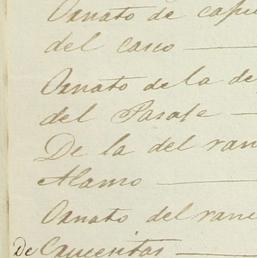 Ornato de capi
del caso
Ornato de la de
del Parage
De la del ran
Alamo
Ornato del ran
De Caperitas